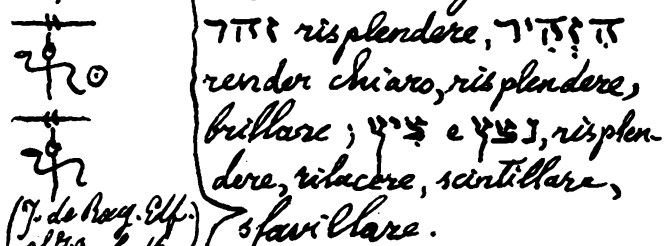 זהר risplendere, הִזְהִיר
render chiaro, risplendere,
brillare ; צִיץ e נצץ, risplen-
dere, rilucere, scintillare,
sfavillare.
(J. de Roug.